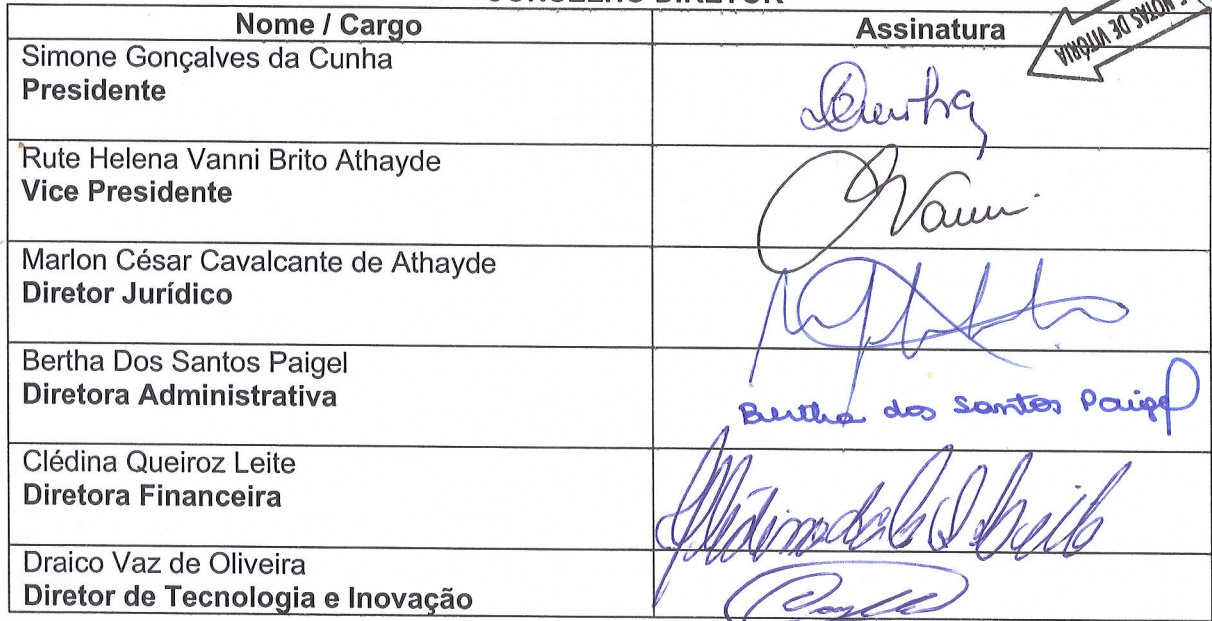 CONSELHO DIRETOR
Nome / Cargo
Assinatura
E NOTAS DE VITÓRIA
Simone Gonçalves da Cunha
Presidente
Rute Helena Vanni Brito Athayde
Vice Presidente
Vanni
Marlon César Cavalcante de Athayde
Diretor Jurídico
Bertha Dos Santos Paigel
Diretora Administrativa
Bertha dos Santos Paigel
Clédina Queiroz Leite
Diretora Financeira
Draico Vaz de Oliveira
Diretor de Tecnologia e Inovação